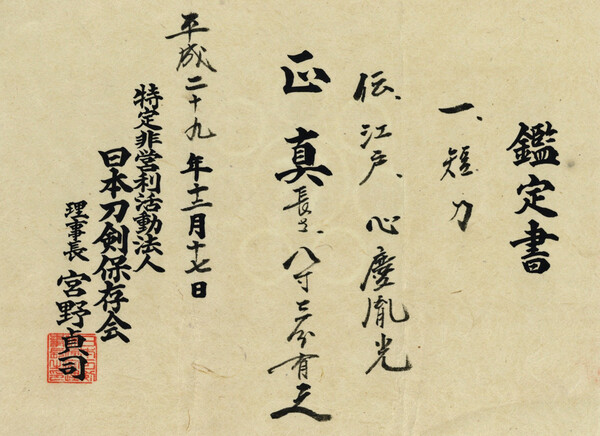 鑑定書
一、短刀
伝、江戸、心慶胤光
正真 長さ、八寸 分有之
平成二十九年十二月十七日
特定非営利活動法人
日本刀剣保存会
理事長 宮野貞司